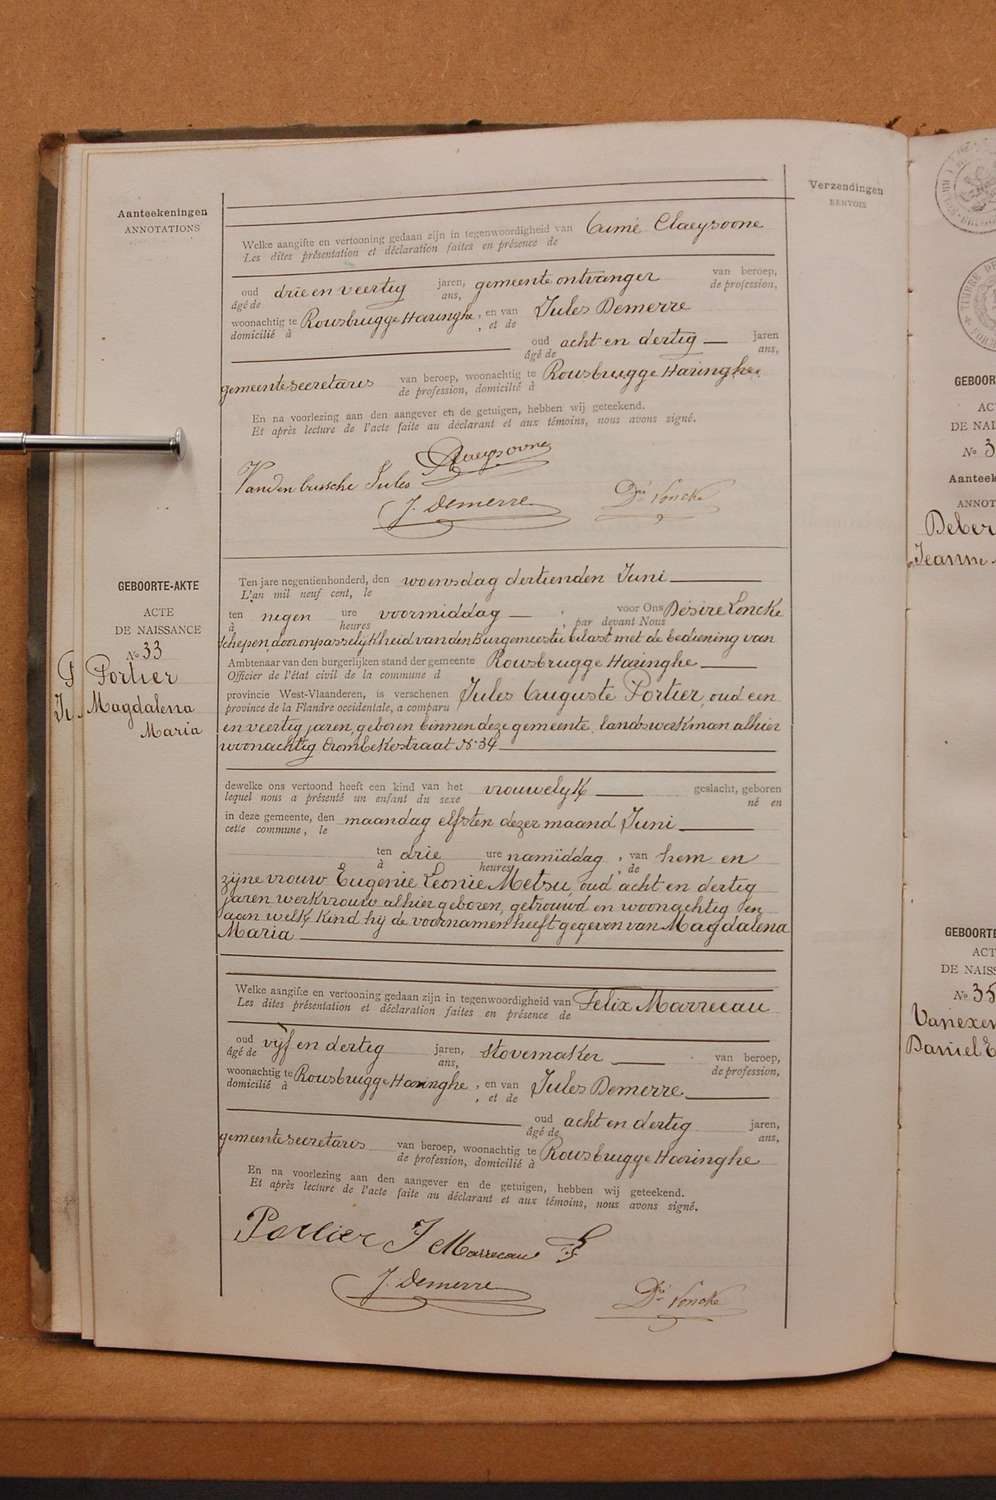 Aanteekeningen
ANNOTATIONS
Verzendingen
RENVOIS
Welke aangifte en vertooning gedaan zijn in tegenwoordigheid van Aimé Claeysoone
Les dites présentation et déclaration faites en présence de
oud drie en veertig jaren, gemeente ontvanger van beroep,
âgé de ans, de profession,
woonachtig te Rousbrugge Haringhe, en van Jules Demerre
domicilié à , et de
oud acht en dertig jaren
âgé de ans,
gemeentesecretaris van beroep, woonachtig te Rousbrugge Haringhe
de profession, domicilié à
En na voorlezing aan den aangever en de getuigen, hebben wij geteekend.
Et après lecture de l'acte faite au déclarant et aux témoins, nous avons signé.
Claeysoone
Vandenbussche Jules
J. Demerre Dré Loncke
GEBOORTE-AKTE
ACTE
DE NAISSANCE
No 33
Portier
Magdalena
Maria
Ten jare negentienhonderd, den woensdag dertienden Juni
L'an mil neuf cent, le
ten negen ure voormiddag , voor Ons Désiré Loncke
à heures , par devant Nous
schepen, door onpasselijkheid van den Burgemeester belast met de bediening van
Ambtenaar van den burgerlijken stand der gemeente Rousbrugge Haringhe
Officier de l'état civil de la commune d
provincie West-Vlaanderen, is verschenen Jules Auguste Portier, oud een
province de la Flandre occidentale, a comparu
en veertig jaren, geboren binnen deze gemeente, landswerkman alhier
woonachtig Crombekestraat No 34
dewelke ons vertoond heeft een kind van het vrouwelijk geslacht, geboren
lequel nous a présenté un enfant du sexe né en
in deze gemeente, den maandag elfsten dezer maand Juni
cette commune, le
ten drie ure namiddag , van hem en
à heures , de
zijne vrouw Eugenie Leonie Metsu, oud acht en dertig
jaren werkvrouw alhier geboren, getrouwd en woonachtig en
aan welk kind hij de voornamen heeft gegeven van Magdalena
Maria
Welke aangifte en vertooning gedaan zijn in tegenwoordigheid van Felix Marrecau
Les dites présentation et déclaration faites en présence de
oud vijf en dertig jaren, stovemaker van beroep,
âgé de ans, de profession,
woonachtig te Rousbrugge Haringhe, en van Jules Demerre
domicilié à , et de
oud acht en dertig jaren,
âgé de ans,
gemeentesecretaris van beroep, woonachtig te Rousbrugge Haringhe
de profession, domicilié à
En na voorlezing aan den aangever en de getuigen, hebben wij geteekend.
Et après lecture de l'acte faite au déclarant et aux témoins, nous avons signé.
Portier J Marrecau
J. Demerre Dré Loncke
GEBOOR
AC
DE NAI
No 3
Aanteek
ANNOT
Deber
Jeanne
GEBOORTE
ACT
DE NAISS
No 35
Vanexem
Daniel E